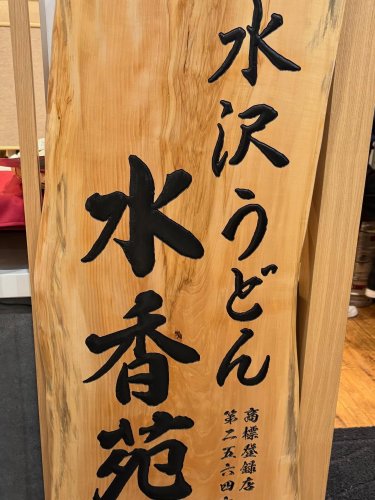 水沢うどん
水香苑
商標登録店
第二五六四